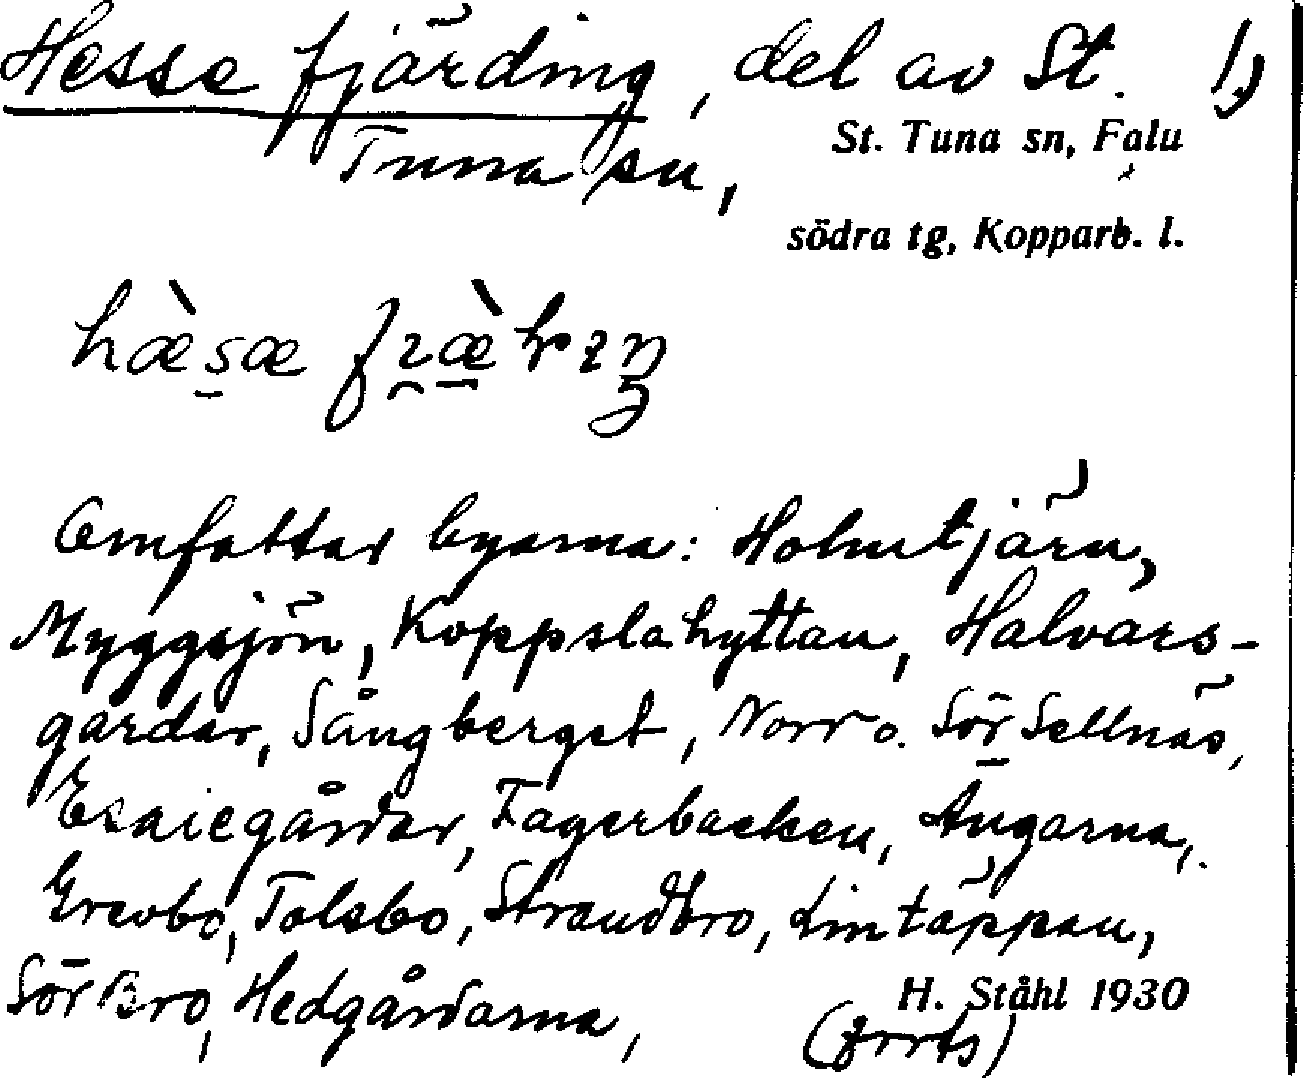 Hesse fjärding, del av St. 1)
St. Tuna sn, Falu
Tuna sn,
södra tg, Kopparb. l.
Omfattar byarna: Holmtjärn,
Myggsjön, Koppslahyttan, Halvars-
gårdar, Sångberget, Norr o. Sör Sellnäs,
Esaiegårdar, Fagerbacken, Ängarna,
Grevbo, Tolsbo, Strandbro, Lintäppan,
Sör Bro, Hedgårdarna,
H. Ståhl 1930
(forts)